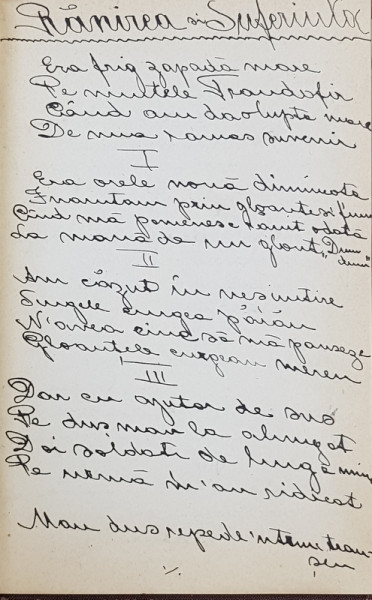 Rănirea și Suferința
Era frig zapadă mare
Pe muntele Frandofir
Când am dat lupte mare
De mi-a ramas suvenir
I
Era orele nouă dimineata
Înaintam prin gloante si fum
Când mă pomenesc ranit odată
La mană de un glont, "Dum
dum"
II
Am căzut în nesimtire
Sungele curgea păiău
N'avea cine să mă panseze
Gloantele curgeau mereu
III
Dar cu ajutor de sus
Pe dusman la alungat
Doi soldati de lungă mine
Pe urmă m'au ridicat
Mau dus repede 'ntrun tran-
șeu
./.